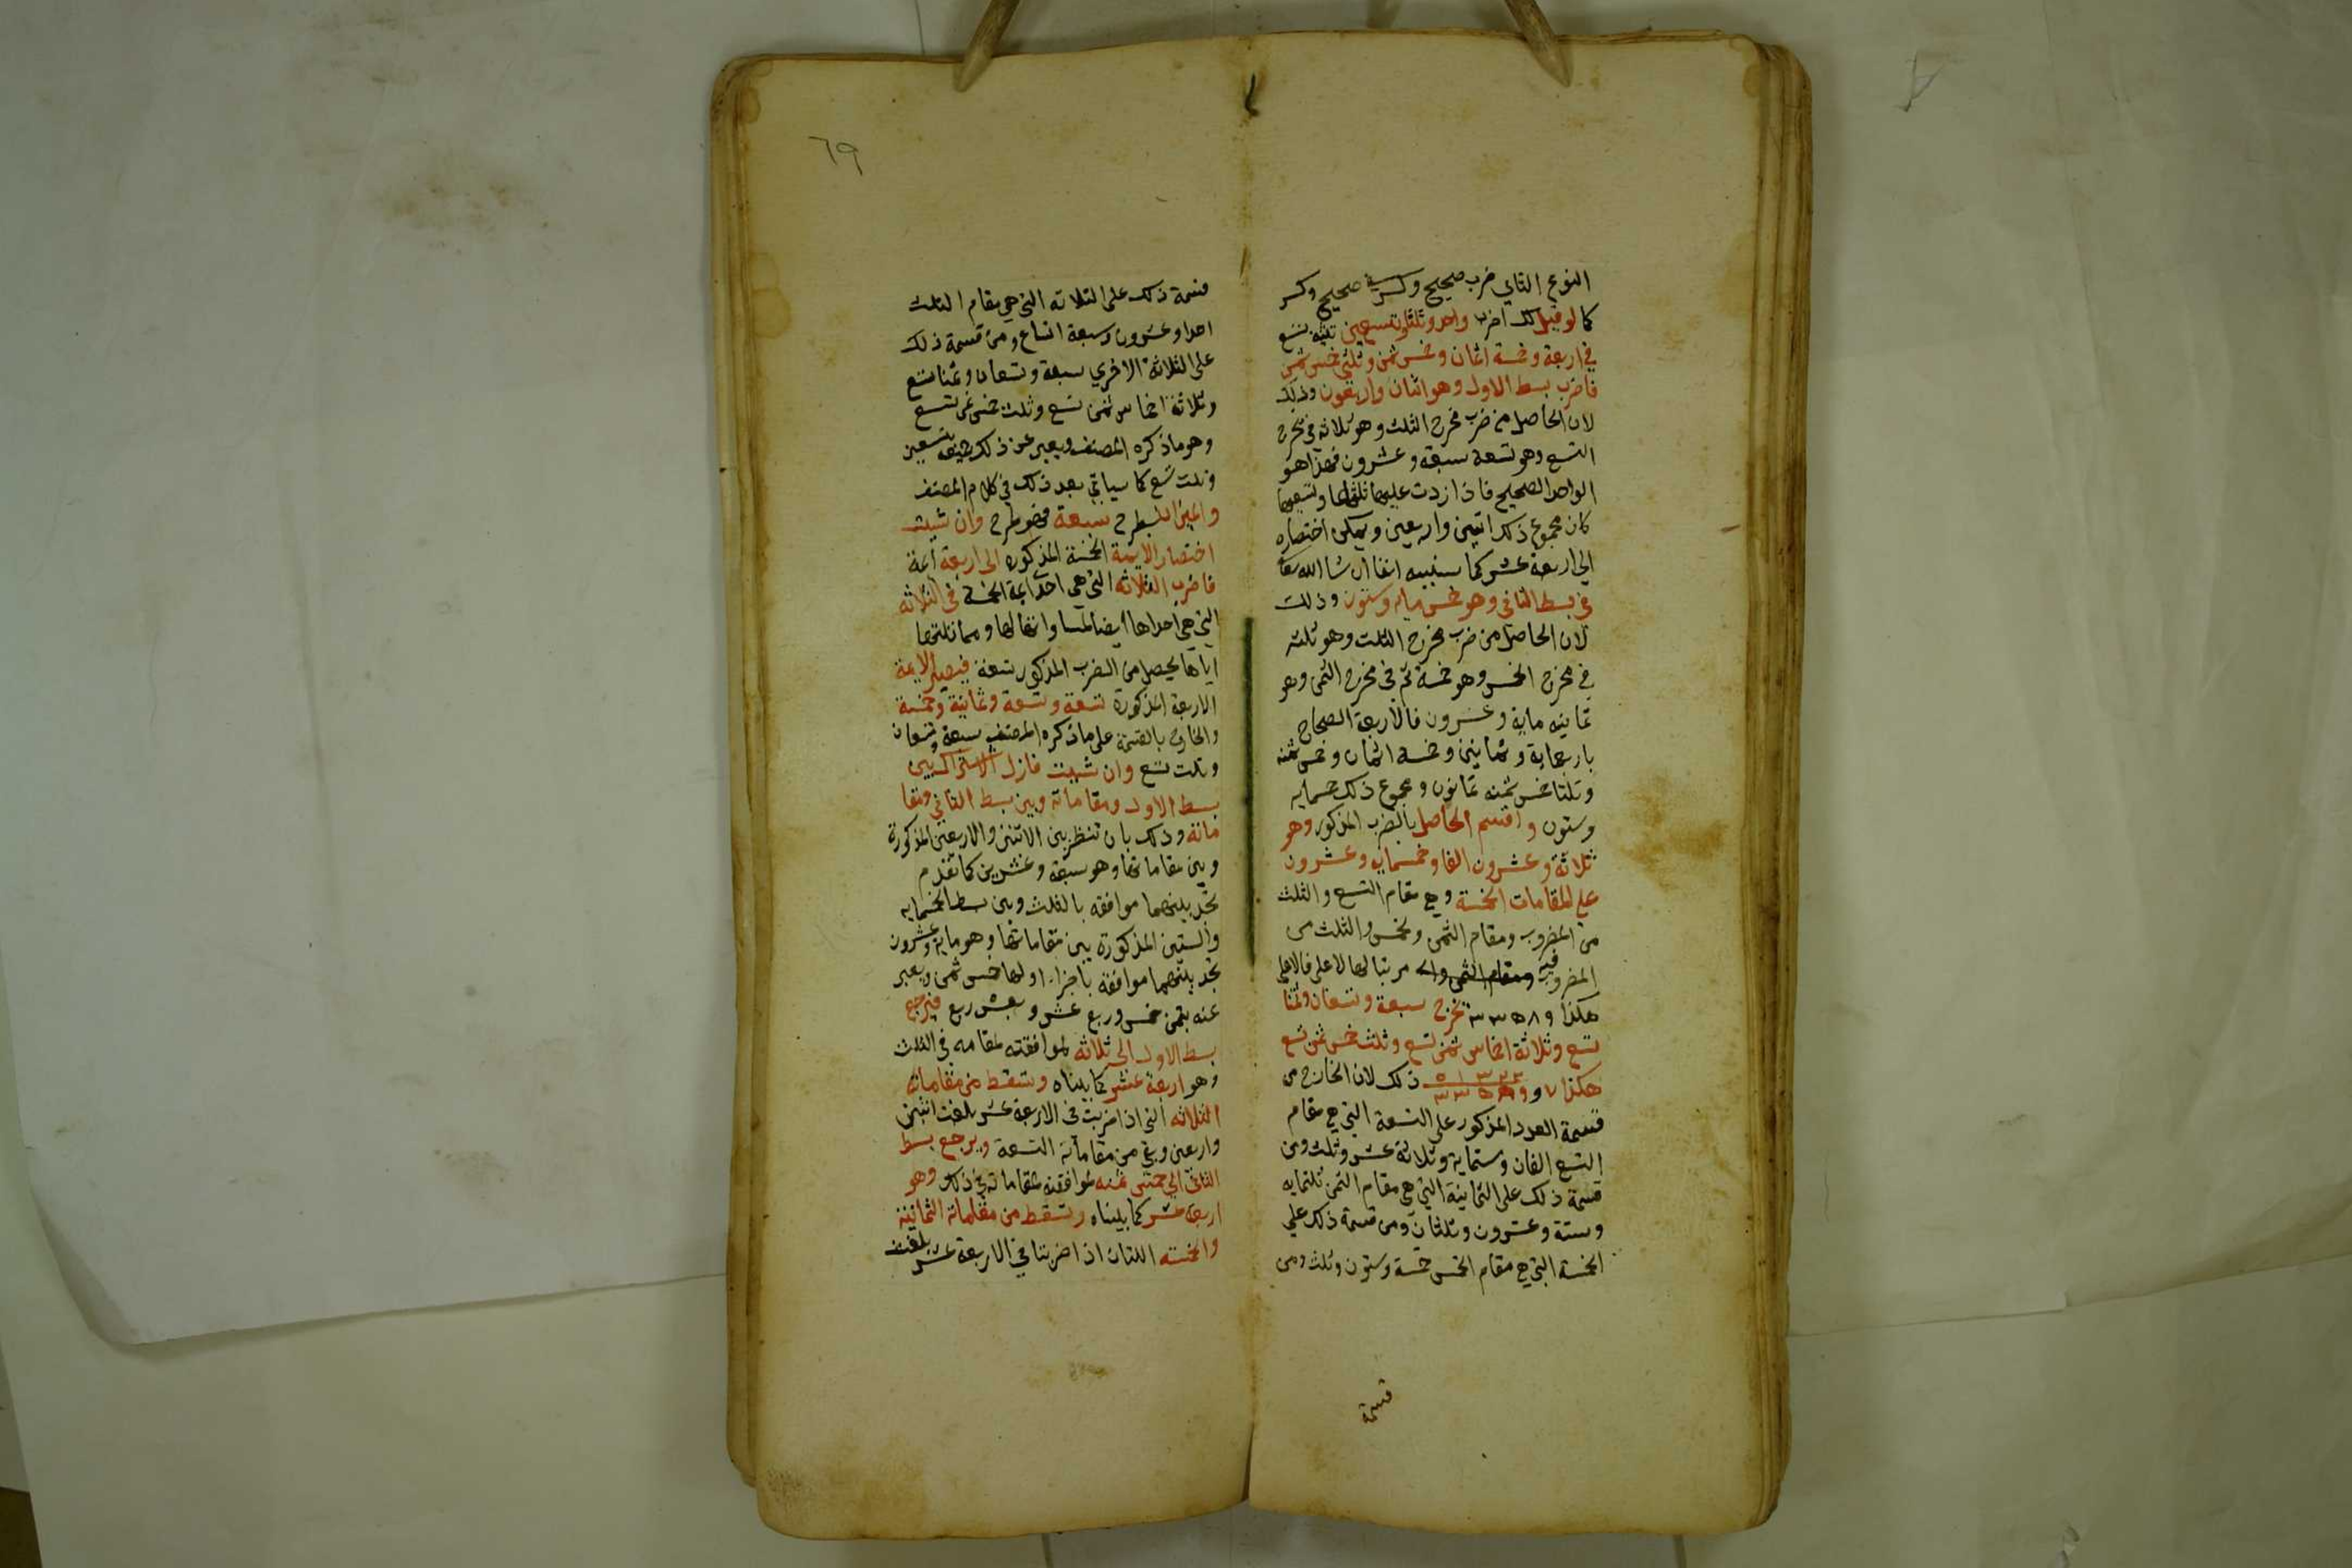 النوع الثاني ضرب صحيح وكسر في صحيح وكسر
كما لو قيل لك اضرب واحد وثلثا وتسعين ثلثيه تسع
في اربعة وخمسة اثمان وخمس ثمن وثلثي خمس ثمن
فاضرب بسط الاول وهو اثنان واربعون وذلك
لان الحاصل من ضرب مخرج الثلث وهو ثلاثه في مخرج
التسع وهو تسعة سبعة وعشرون فهذا هو
الواحد الصحيح فاذا زدت عليها ثلثها وتسعيها
كان مجموع ذلك اثنين واربعين ويمكن اختصاره
الي اربعة عشر كما سنبينه انفا ان شا الله تعا
في بسط الثاني وهو خمس مايه وستون وذلك
لان الحاصل من ضرب مخرج الثلث وهو ثلثه
في مخرج الخمس وهو خمسة ثم في مخرج الثمن وهو
ثمانيه ماية وعشرون فالاربعة الصحاح
باربعماية وثمانين وخمسه اثمان وخمس ثمنه
وثلثا خمس ثمنه ثمانون ومجموع ذلك خمسمايه
وستون واقسم الحاصل بالضرب المذكور وهو
ثلاثة وعشرون الفا وخمسمايه وعشرون
علي المقامات الخمسة وهي مقام التسع والثلث
من المضروب ومقام الثمن والخمس والثلث من
المضروب فيه مرتبا لها الاعلي فالاعلي
هكذا ٩ ٨ ٥ ٣ ٣ تخرج سبعة وتسعان وثمنا
تسع وثلاثة اخماس ثمن تسع وثلث خمس ثمن تسع
هكذا ٧ و ذلك لان الخارج من
قسمة العدد المذكور علي التسعة التي هي مقام
التسع الفان وستماية وثلاثة عشر وثلث ومن
قسمة ذلك علي الثمانية التي هي مقام الثمن ثلثمايه
وستة وعشرون وثلثان ومن قسمة ذلك علي
الخمسة التي هي مقام الخمس خمسة وستون وثلث ومن
قسمة
٦٩
قسمة ذلك علي الثلاثه التي هي مقام الثلث
احدا وعشرون وسبعة اتساع ومن قسمة ذلك
علي الثلاثة الاخري سبعة وتسعان وثمنا تسع
وثلاثة اخماس ثمن تسع وثلث خمس ثمن تسع
وهو ما ذكره المصنف ويعبر عن ذلك بتسعين
وثلث تسع كما سياتي بعد ذلك في كلام المصنف
والميزان بطرح سبعة فهو طرح وان شيت
اختصار الايمة الخمسة المذكوره الي اربعة ايمة
فاضرب الثلاثه التي هي احد ايمة الخمسة في الثلاثه
التي هي احداها ايضا
اياها يحصل من الضرب المذكور تسعة فيصير الايمة
الاربعة المذكورة تسعة وتسعة وثمانية وخمسة
والخارج بالقسمة علي ما ذكره المصنف سبعة وتسعان
وثلث تسع وان شيت فازل الاشتراك بين
بسط الاول ومقاماته وبين بسط الثاني ومقا
ماته وذلك بان تنظر بين الاثنين والاربعين المذكورة
وبين مقاماتها وهو سبعة وعشرين كما تقدم
تجد بينهما موافقه بالثلث وبين بسط الخمسمايه
والستين المذكورة بين مقاماتها وهو ماية وعشرون
تجد بينهما موافقه باجزاء اولها خمس ثمن ويعبر
عنه بثمن خمس وربع عشر وبعشر ربع فيرجع
بسط الاول الي ثلاثه لموافقته لمقامه في الثلث
وهو اربعة عشر كما بيناه وتسقط من مقاماته
الثلاثه التي اذا ضربت في الاربعة عشر بلغت اثنين
واربعين وبقي من مقاماته التسعة ويرجع بسط
الثاني الي خمس ثمنه لموافقته لمقاماته في ذلك وهو
اربعة عشر كما بيناه وتسقط من مقاماته الثمانية
والخمسه اللتان اذا ضربتا في الاربعة عشر بلغت